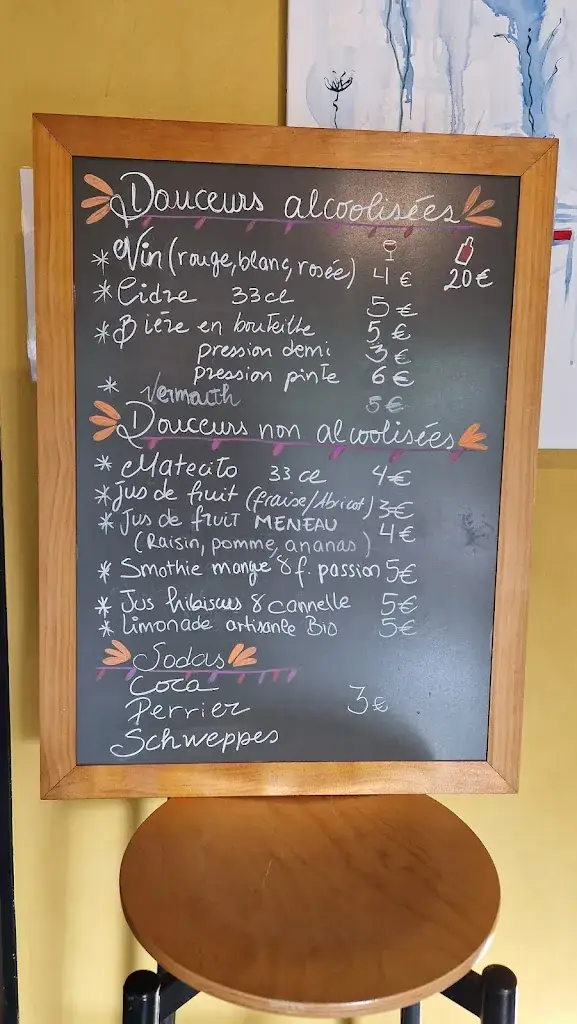 Douceurs alcoolisées
* Vin (rouge, blanc, rosée) 4 € 20 €
* Cidre 33 cl 5 €
* Bière en bouteille 5 €
pression demi 3 €
pression pinte 6 €
* Vermouth 5 €
Douceurs non alcoolisées
* Matecito 33 cl 4 €
* Jus de fruit (fraise/Abricot) 3 €
* Jus de fruit MENEAU 4 €
(Raisin, pomme, ananas)
* Smothie mangue & f. passion 5 €
* Jus hibiscus & cannelle 5 €
* Limonade artisanle Bio 5 €
Sodas
Coca
Perrier 3 €
Schweppes